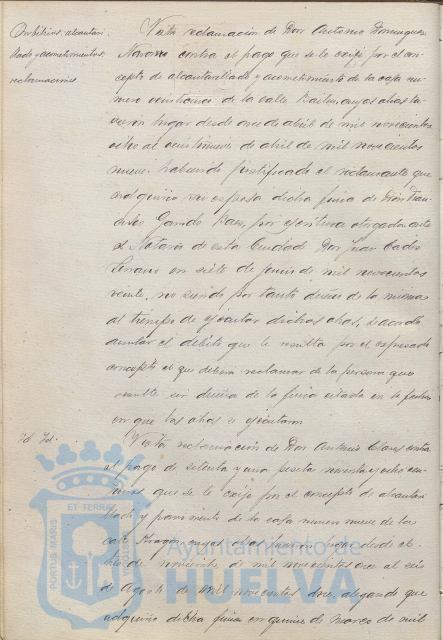 Arbitrios, alcantari-
llado y acometimientos,
reclamaciones.
Vista reclamación de Don Antonio Dominguez
Navarro contra el pago que se le exije por el con-
cepto de alcantarillado y acometimiento de la casa nú-
mero veinticinco de la calle Bailen, cuyas obras tu-
vieron lugar desde once de abril de mil novecientos
ocho al veintinueve de abril de mil novecientos
nueve, habiendo justificado el reclamante que
adquirió la expresada dicha finca de Don Fran-
cisco Garrido por escritura otorgada ante
el Notario de esta Ciudad Don Juan Cadiz
Serrano en siete de junio de mil novecientos
veinte, no siendo por tanto dueño de la misma
al tiempo de ejecutar dichas obras, se acordó
anular el débito que le resulta por el expresado
concepto el que deberá reclamar de la persona que
resulte ser dueña de la finca citada en la fecha
en que las obras se ejecutaron
Id. Id.
Vista reclamación de Don Antonio contra
el pago de setenta y una peseta noventa y ocho cen-
timos que se le exije por el concepto de alcantari-
llado y pavimento de la casa número nueve de la
calle Aragon, cuyas obras tuvieron lugar desde el
de noviembre de mil novecientos once al seis
de Agosto de mil novecientos doce, alegando que
adquirió dicha finca en quince de marzo de mil
PORTUS MARIS ET TERRAE
Ayuntamiento de
HUELVA